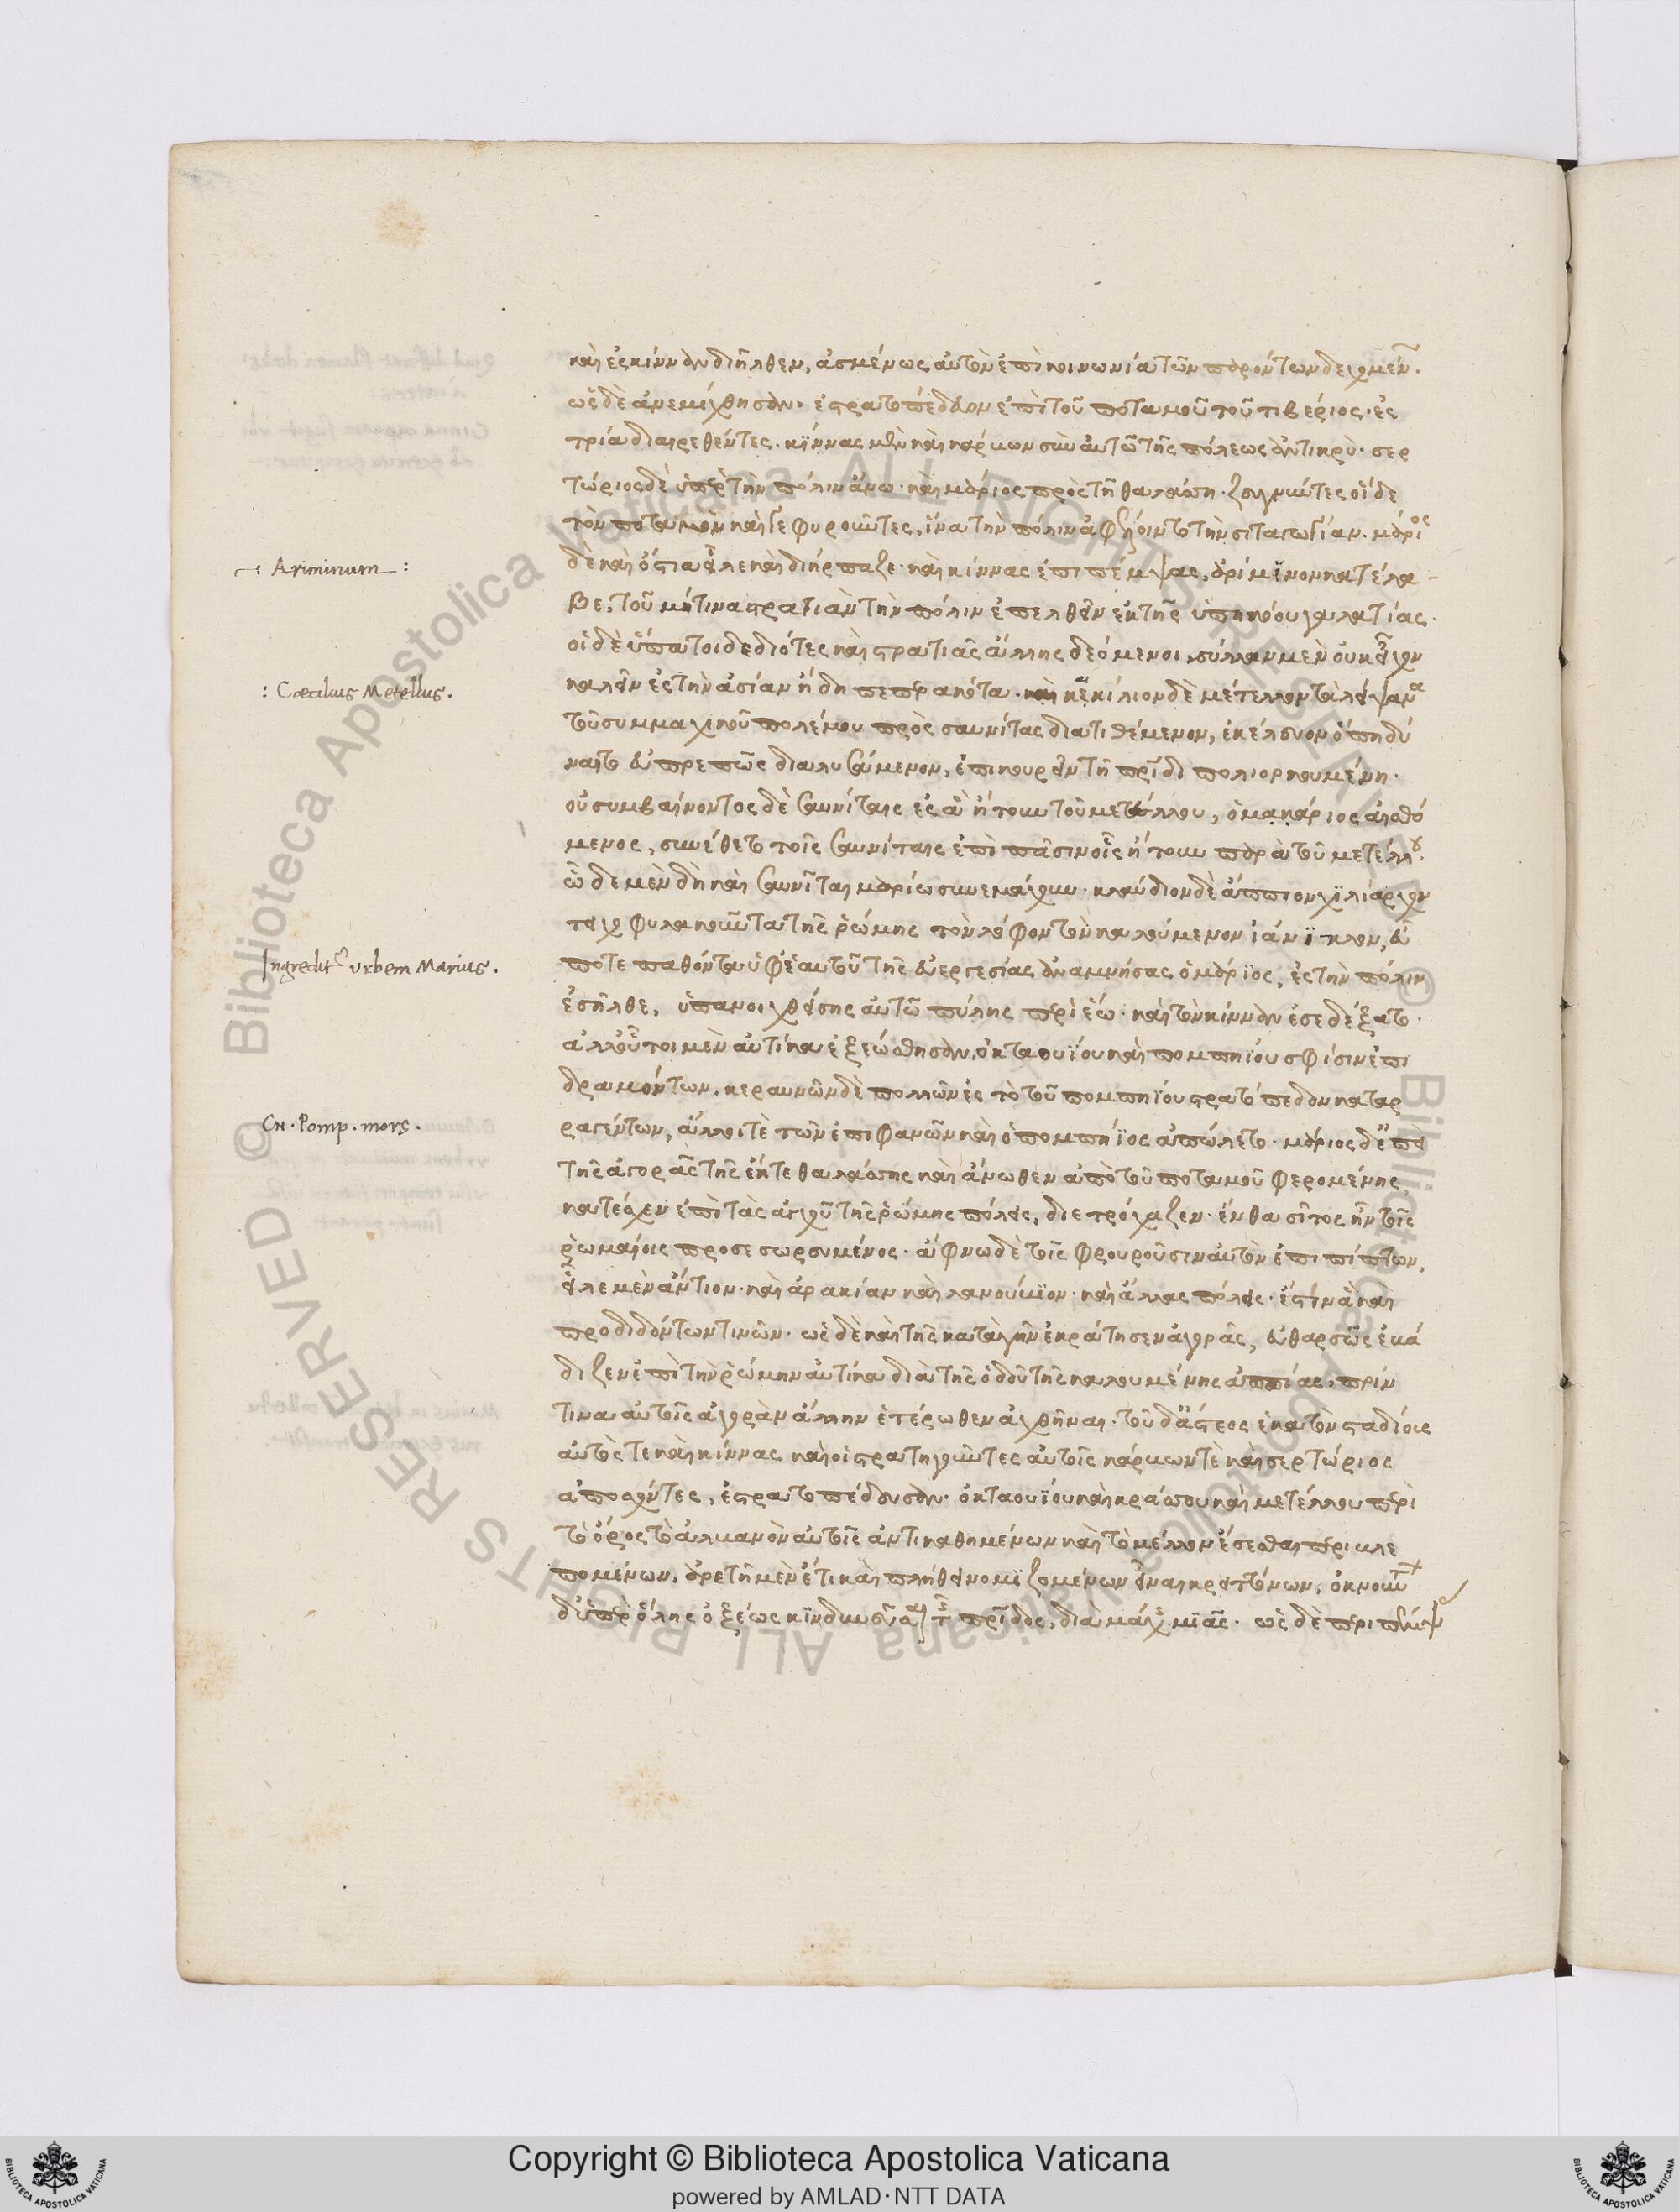 καὶ ἐς κίνναν διῆλθεν, ἀσμένως αὐτὸν ἐπὶ κοινωνία τῶν παρόντων δεχομέν.
ὡς δὲ ἀνεμίχθησαν. ἐστρατοπέδευον ἐπὶ τοῦ ποταμοῦ τοῦ τιβέριος. ἐς
τρία διαιρεθέντες. κίννας μὲν καὶ κάρβων σὺν αὐτῶ τῆς πόλεως ἀντικρύ. σερ
τώριος δὲ ὑπὲρ τὴν πόλιν ἄνω. καὶ μάριος πρὸς τῆ θαλάσση. ζευγνῦντες οἵδε
τὸν ποταμὸν καὶ γεφυροῦντες, ἵνα τὴν πόλιν ἀφέλοιντο τὴν σιταγωγίαν. μάριος
: Ariminum :
δὲ καὶ ὄστια εἷλε καὶ διήρπαζε. καὶ κίννας ἐπιπέμψας, ἀρίμινον κατέλα
βε, τοῦ μήτινα στρατιὰν τὴν πόλιν ἐπελθεῖν ἐκ τῆς ὑπηκόου γαλατίας.
οἱ δὲ ὕπατοι δεδιότες καὶ στρατιᾶς ἄλλης δεόμενοι, σύλλαν μὲν οὐκ εἶχον
: Cæcilius Metellus.
καλεῖν ἐς τὴν ἀσίαν ἤδη πεπερακότα. κεκίλιον δὲ μέτελλον τὰ λείψανα
τοῦ συμμαχικοῦ πολέμου πρὸς σαυνίτας διατιθέμενον, ἐκέλευον ὅπη δύ
ναιτο εὐπρεπῶς διαλυσάμενον, ἐπικουρεῖν τῆ πατρίδι πολιορκουμένη.
οὐ συμβαίνοντος δὲ σαυνίταις ἐς ἃ ἤτουν τοῦ μετέλλου, ὁ μάριος αἰσθό
μενος, συνέθετο τοῖς σαυνίταις ἐπὶ πᾶσιν οἷς ἤτουν παρὰ τοῦ μετέλλου.
ὧδε μὲν δὴ καὶ σαυνῖται μαρίω συνεμάχουν. κλαύδιον δὲ ἄππιον χιλίαρχον
τειχοφυλακοῦντα τῆς ῥώμης τὸν λόφον τὸν καλούμενον ἰάνικλον, εὖ
Ingredit' urbem Marius.
ποτε παθόντα ὑφ' ἑαυτοῦ τῆς εὐεργεσίας ἀναμνήσας ὁ μάριος, ἐς τὴν πόλιν
ἐσῆλθε, ὑπανοιχθείσης αὐτῶ πύλης περὶ ἕω. καὶ τὸν κίνναν ἐσεδέξατο.
ἀλλ' οὗτοι μὲν αὐτίκα ἐξεώσθησαν, ὀκταουίου καὶ πομπηίου σφίσιν ἐπι
δραμόντων. κεραυνῶν δὲ πολλῶν ἐς τὸ τοῦ πομπηίου στρατόπεδον καταρ
Cn. Pomp. mors.
ραγέντων, ἄλλοι τὲ τῶν ἐπιφανῶν καὶ ὁ πομπήιος ἀπώλετο. μάριος δ' ἐπεὶ
τῆς ἀγορᾶς τῆς ἔκ τε θαλάσσης καὶ ἄνωθεν ἀπὸ τοῦ ποταμοῦ φερομένης
κατέσχεν ἐπὶ τὰς ἀγχοῦ τῆς ῥώμης πόλεις, διετρόχαζεν. ἔνθα σῖτος ἦν τοῖς
ῥωμαίοις προσεσωρευμένος. ἄφνω δὲ τοῖς φρουροῦσιν αὐτὸν ἐπιπίπτων,
εἷλε μὲν ἄντιον. καὶ ἀρακίαν καὶ λανούκιον. καὶ ἄλλας πόλεις. ἔστιν ἃ καὶ
προδιδόντων τινῶν. ὡς δὲ καὶ τῆς κατὰ γῆν ἐκράτησεν ἀγορᾶς, εὐθαρσῶς ἐβά
διζεν ἐπὶ τὴν ῥώμην αὐτίκα διὰ τῆς ὁδοῦ τῆς καλουμένης ἀππίας, πρίν
τινα αὐτοῖς ἀγορὰν ἄλλην ἑτέρωθεν ἀχθῆναι. τοῦ δ' ἄστεος ἑκατὸν σταδίοις
αὐτός τε καὶ κίννας καὶ οἱ στρατηγοῦντες αὐτοῖς κάρβων τὲ καὶ σερτώριος
ἀποσχόντες, ἐστρατοπέδευσαν. ὀκταουίου καὶ κράσσου καὶ μετέλλου περὶ
τὸ ὄρος τὸ ἀλβανὸν αὐτοῖς ἀντικαθημένων καὶ τὸ μέλλον ἔσεσθαι περιβλε
πομένων. ἀρετῆ μὲν ἔτι καὶ πλήθει νομιζομένων εἶναι κρειττόνων, ὀκνούντων
δ' ὑπὲρ ὅλης ὀξέως κινδυνεῦσαι τῆς πατρίδος, διὰ μάχης μιᾶς. ὡς δὲ περιπέμψ
Copyright © Biblioteca Apostolica Vaticana
powered by AMLAD·NTT DATA
© Biblioteca Apostolica Vaticana ALL RIGHTS RESERVED